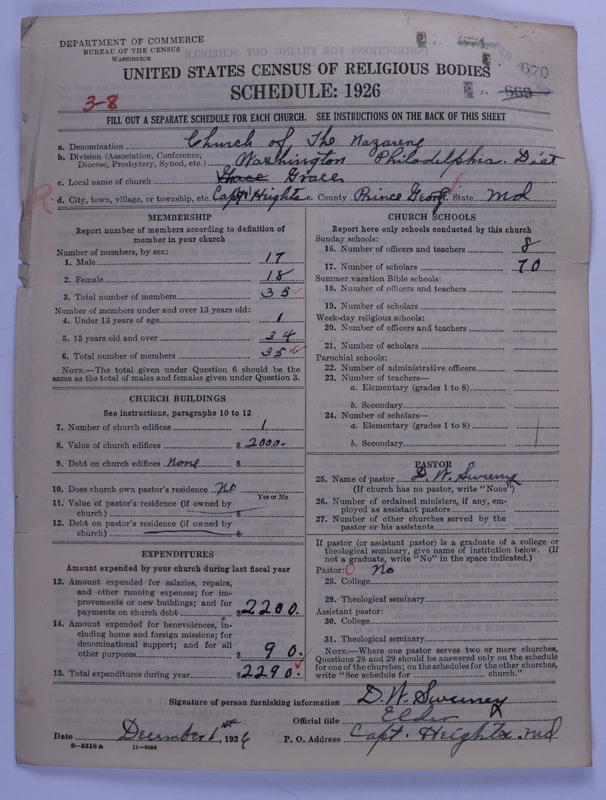 DEPARTMENT OF COMMERCE
BUREAU OF THE CENSUS
WASHINGTON
671
670
669
UNITED STATES CENSUS OF RELIGIOUS BODIES
SCHEDULE: 1926
3-8
FILL OUT A SEPARATE SCHEDULE FOR EACH CHURCH. SEE INSTRUCTIONS ON THE BACK OF THIS SHEET
a. Denomination Church of The Nazarene
b. Division (Association, Conference, Diocese, Presbytery, Synod, etc.) Washington Philadelphia Dist
c. Local name of church Grace Graces
R
d. City, town, village, or township, etc. Capt. Heights e. County Prince Georg State Md
MEMBERSHIP
Report number of members according to definition of
member in your church
Number of members, by sex:
1. Male 17
2. Female 18
3. Total number of members 35
Number of members under and over 13 years old:
4. Under 13 years of age 1
5. 13 years old and over 34
6. Total number of members 35
NOTE.—The total given under Question 6 should be the
same as the total of males and females given under Question 3.
CHURCH BUILDINGS
See instructions, paragraphs 10 to 12
7. Number of church edifices 1
8. Value of church edifices $ 2000.
9. Debt on church edifices None $
10. Does church own pastor's residence No
Yes or No
11. Value of pastor's residence (if owned by
church) $
12. Debt on pastor's residence (if owned by
church) $
EXPENDITURES
Amount expended by your church during last fiscal year
13. Amount expended for salaries, repairs,
and other running expenses; for im-
provements or new buildings; and for
payments on church debt $ 2200.
14. Amount expended for benevolences, in-
cluding home and foreign missions; for
denominational support; and for all
other purposes $ 90.
15. Total expenditures during year $ 2290.
CHURCH SCHOOLS
Report here only schools conducted by this church
Sunday schools:
16. Number of officers and teachers 8
17. Number of scholars 70
Summer vacation Bible schools:
18. Number of officers and teachers
19. Number of scholars
Week-day religious schools:
20. Number of officers and teachers
21. Number of scholars
Parochial schools:
22. Number of administrative officers
23. Number of teachers—
a. Elementary (grades 1 to 8)
b. Secondary
24. Number of scholars—
a. Elementary (grades 1 to 8)
b. Secondary
PASTOR
25. Name of pastor D. W. Sweeney
(If church has no pastor, write "None")
26. Number of ordained ministers, if any, em-
ployed as assistant pastors
27. Number of other churches served by the
pastor or his assistants
If pastor (or assistant pastor) is a graduate of a college or
theological seminary, give name of institution below. (If
not a graduate, write "No" in the space indicated.)
Pastor: 0 No
28. College
29. Theological seminary
Assistant pastor:
30. College
31. Theological seminary
NOTE.—Where one pastor serves two or more churches,
Questions 28 and 29 should be answered only on the schedule
for one of the churches; on the schedules for the other churches,
write "See schedule for church."
Signature of person furnishing information D. W. Sweeney
Official title Elder
Date December 1st, 1926 P. O. Address Capt. Heights. Md
8-5318a 11-9034